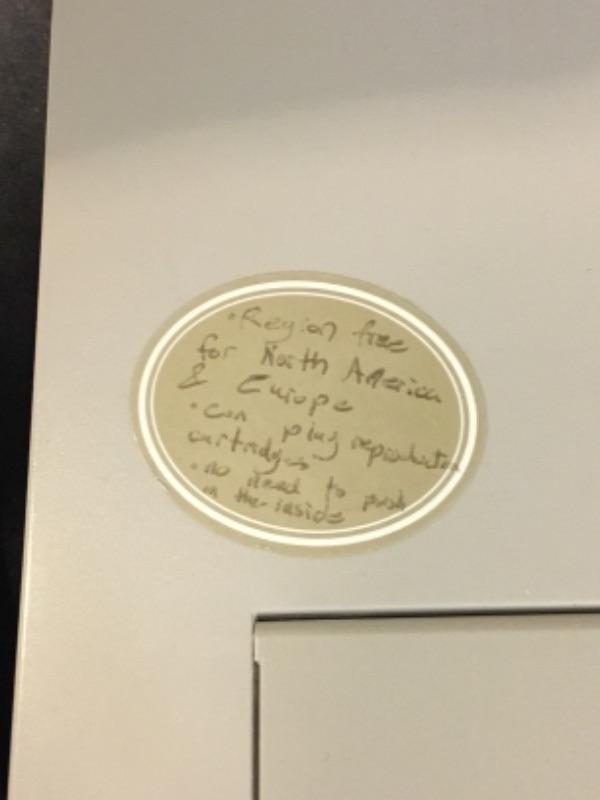 • Region free
for North America
& Europe
• can play reproduction
cartridges
• no need to push
in the inside